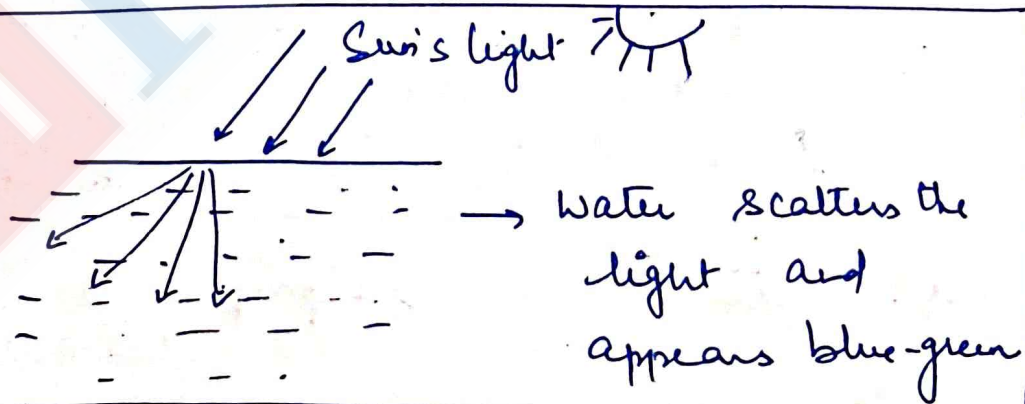 Sun's light
→ water scatters the
light and
appears blue-green